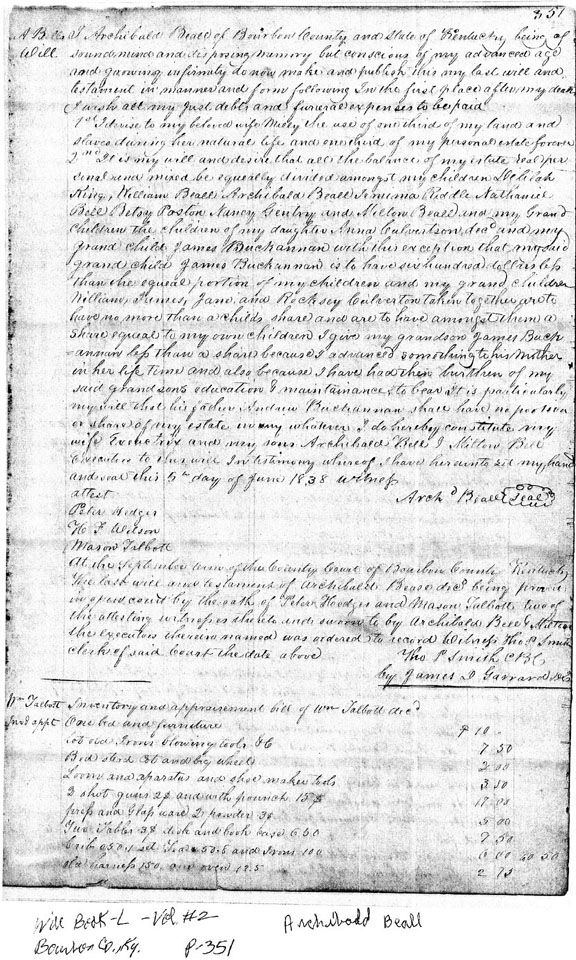 351
A Bell
Will
I Archibald Beall of Bourbon County and State of Kentucky, being of
sound mind and disposing memory but conscious of my advanced age
and growing infirmity do now make and publish this my last will and
testament in manner and form following In the first place after my death
I wish all my just debts and funeral expenses to be paid
1st I devise to my beloved wife the use of one third of my land and
slaves during her natural life and one third of my personal estate forever
2nd It is my will and desire that all the balance of my estate real per
sonal and mixed be equally divided amongst my children Delilah
King, William Beall Archibald Beall Jemima Riddle Nathaniel
Bell Betsy Poston Nancy Gentry and Millow Beall and my Grand
children the children of my daughter Anna Culvertson decd and my
grand child James Buckannan with the exception that my said
grand child James Buckannan is to have six hundred dollars less
than the equal portion of my children and my grand children
William, James, Jane, and Rocksey Culverton taken together are to
have no more than a childs share and are to have amongst them a
share equal to my own children I give my grandson James Buck
annan less than a share because I advanced something to his Mother
in her life time and also because I have had the burthen of my
said grandsons education & maintainance to bear It is particularly
my will that his father Andrew Buckannan shall have no portion
or share of my estate in any whatever I do hereby constitute my
wife Executrix and my sons Archibald Bell & Millow Bell
Executors to this will In testimony whereof I have hereunto set my hand
and seal this 5th day of June 1838 witness
attest
Archd Beall Seal
Peter Hedges
H F Wilson
Mason Talbott
At the September term of the County Court of Bourbon County Kentucky
The last will and testament of Archibald Beall decd being proved
in open court by the oath of Peter Hedges and Mason Talbott two of
the attesting witnesses thereto and sworn to by Archibald Bell & Millow
the executors therein named was ordered to record Witness Tho P Smith
clerk of said Court the date above
Tho P Smith CBC
by James D Garrard DC
Wm Talbott
Inventory and appraisement bill of Wm Talbott decd
Invd appt
One bed and furniture $ 10
Lot old Irons plowing tools &c 7 50
Bed sted &c and big wheel 2 00
Loom and apparatus and shoe makers tools
3 shot guns and with pouch
press and Glass ware 2 powder 5 00
Two Tables desk and book case 6 50 7 50
Crib 650 1 set and Irons 100
old harness 150 one oven 125 2 75
Will Book-L - Vol. #2
Archibald Beall
Bourbon Co, Ky.
P-351